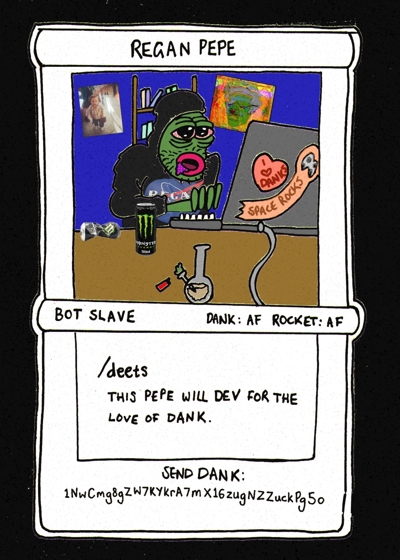 REGAN PEPE
I
DANKS
SPACE ROCKS
REGA
MONSTER
BOT SLAVE DANK: AF ROCKET: AF
/deets
THIS PEPE WILL DEV FOR THE
LOVE OF DANK.
SEND DANK:
1NwCmg8gZW7KYkrA7mX16zugNZZuckPg5o